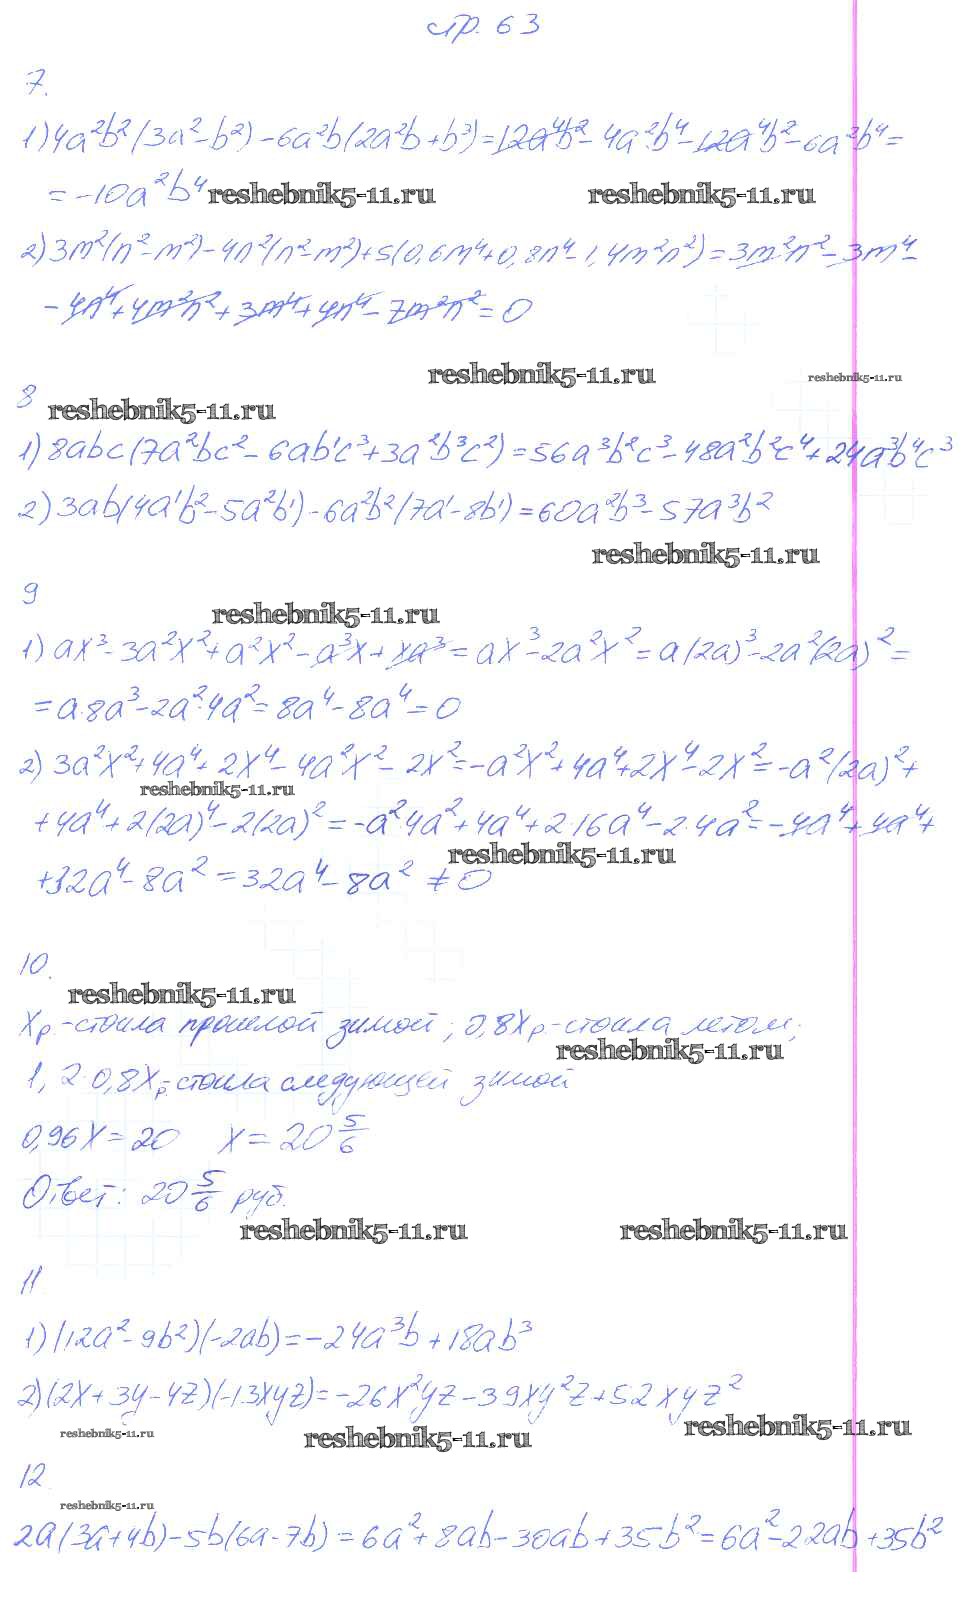 стр. 63
7.
1) 4a²b²(3a²-b²)-6a²b(2a²b+b³)=12a⁴b²-4a²b⁴-12a⁴b²-6a²b⁴=
=-10a²b⁴ reshebnik5-11.ru reshebnik5-11.ru
2) 3m²(n²-m²)-4n²(n²-m²)+5(0,6m⁴+0,8n⁴-1,4m²n²)=3m²n²-3m⁴-
-4n⁴+4m²n²+3m⁴+4n⁴-7m²n²=0
reshebnik5-11.ru reshebnik5-11.ru
8
reshebnik5-11.ru
1) 8abc(7a²bc²-6ab¹c³+3a²b³c²)=56a³b²c³-48a²b²c⁴+24a³b⁴c³
2) 3ab(4a¹b²-5a²b¹)-6a²b²(7a¹-8b¹)=60a²b³-57a³b²
reshebnik5-11.ru
9
reshebnik5-11.ru
1) ax³-3a²x²+a²x²-a³x+xa³=ax³-2a²x²=a(2a)³-2a²(2a)²=
=a·8a³-2a²·4a²=8a⁴-8a⁴=0
2) 3a²x²+4a⁴+2x⁴-4a²x²-2x²=-a²x²+4a⁴+2x⁴-2x²=-a²(2a)²+
reshebnik5-11.ru
+4a⁴+2(2a)⁴-2(2a)²=-a²·4a²+4a⁴+2·16a⁴-2·4a²=-4a⁴+4a⁴+
reshebnik5-11.ru
+32a⁴-8a²=32a⁴-8a²≠0
10.
reshebnik5-11.ru
xр.-стоила прошлой зимой; 0,8xр-стоила летом;
reshebnik5-11.ru
1,2·0,8xр-стоила следующей зимой
0,96x=20 x=20 5/6
Ответ: 20 5/6 руб.
reshebnik5-11.ru reshebnik5-11.ru
11.
1) (12a²-9b²)(-2ab)=-24a³b+18ab³
2) (2x+3y-4z)(-13xyz)=-26x²yz-39xy²z+52xyz²
reshebnik5-11.ru reshebnik5-11.ru reshebnik5-11.ru
12.
reshebnik5-11.ru
2a(3a+4b)-5b(6a-7b)=6a²+8ab-30ab+35b²=6a²-22ab+35b²